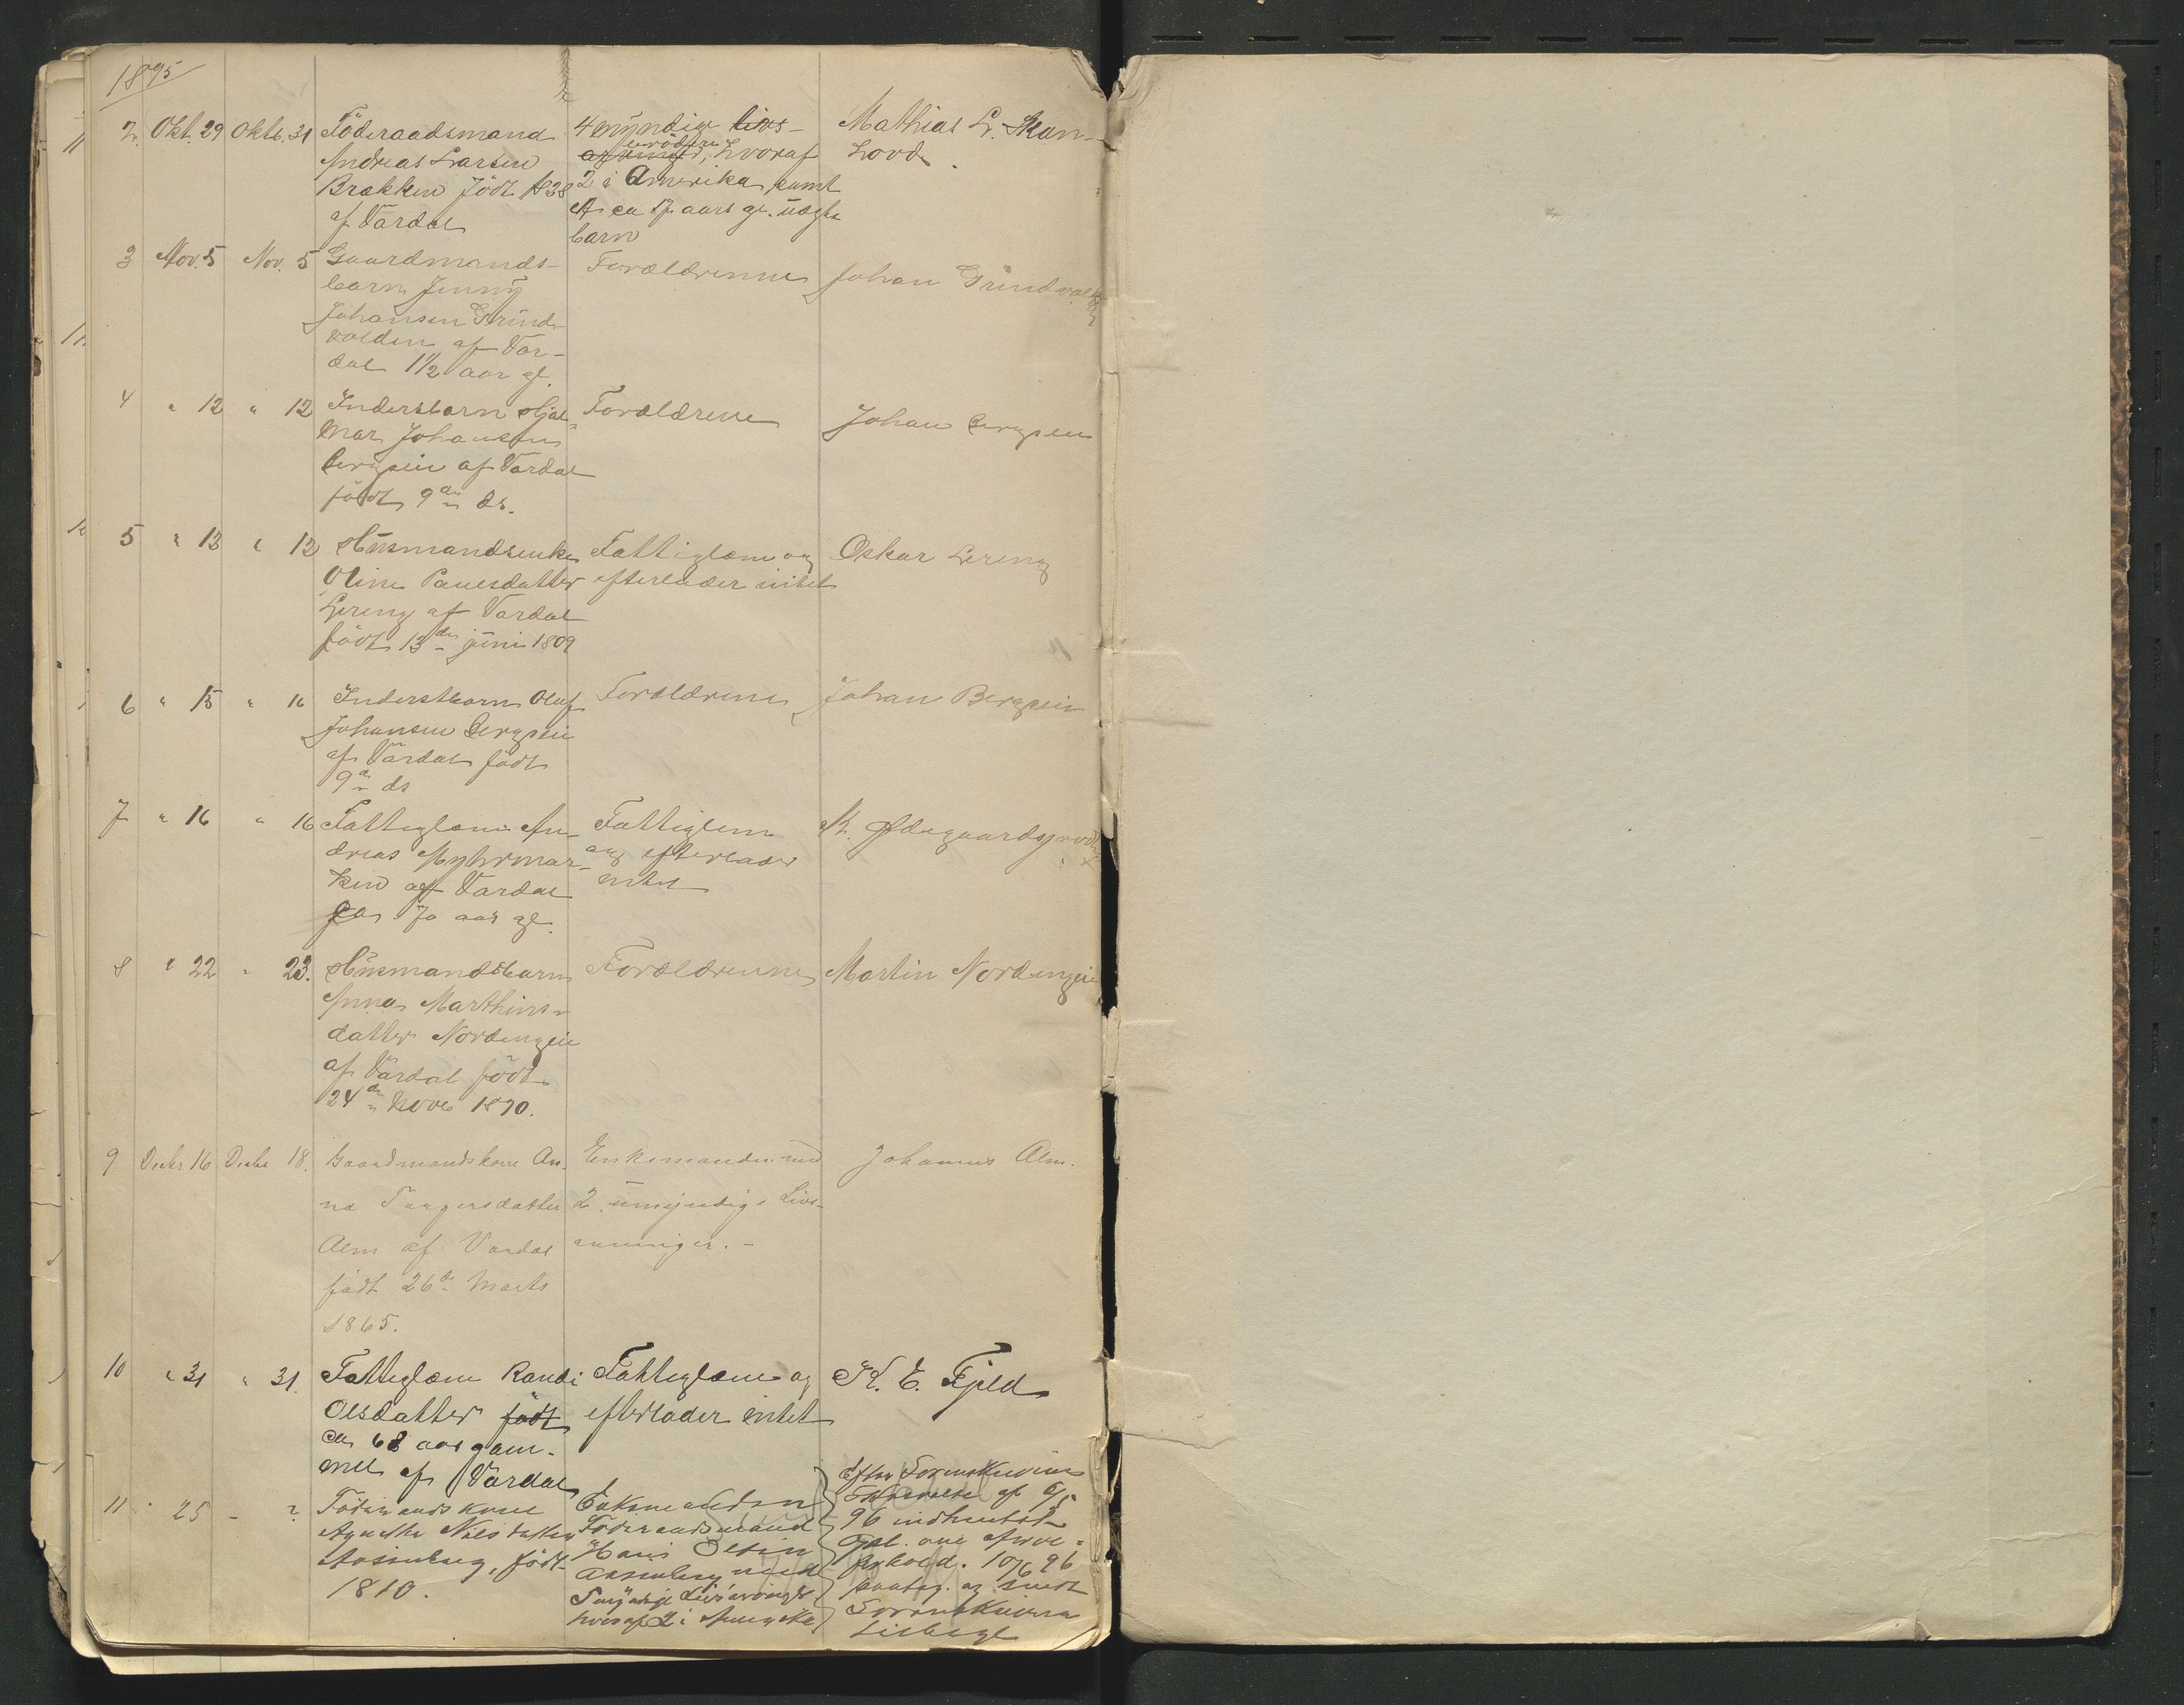 1895
2. Okt. 29 Oktb. 31 Föderaadsmand
Andreas Larsen
Brækken född 1838
af Vardal
4 myndige livs-
arvinger, hvoraf
2 i Amerika samt
et ca 17 aars gl. uægte
barn
Mathias L. Skon-
hovd
3 Nov. 5 Nov. 5 Gaardmands-
barn Jenny
Johansen Grind-
volden af Var-
dal 1 1/2 aar gl.
Forældrenne
Johan Grindvolden
4 " 12 " 12 Inderstbarn Hjal-
mar Johansen
Bergseie af Vardal
födt 9de ds.
Forældrene
Johan Bergseie
5 " 12 " 12 Husmandsenke
Oline Paulsdatter
Lereng af Vardal
födt 13de juni 1809
Fattiglem og
efterlader intet
Oskar Lereng
6 " 15 " 16 Inderstbarn Oluf
Johansen Bergseie
af Vardal födt
9de ds
Forældrene
Johan Bergseie
7 " 16 " 16 Fattiglem An-
dreas Myhrmar-
ken af Vardal
ca 70 aar gl.
Fattiglem
og efterlader
intet
M. Ødegaards
8 " 22 " 23. Husmandsbarn
Anna Marthins-
datter Nordengeie
af Vardal född
24de Novb 1890.
Forældrenne
Martin Nordengeie
9 Decbr 16 Decbr 18. Gaardmandskone An-
na Torgersdatter
Alm af Vardal
född 26de Marts
1865.
Enkemanden med
2 umyndige Livs-
arvinger. -
Johannes Alm.
10 " 31 " 31. Fattiglem Randi
Olsdatter födt
ca 68 aar gam-
mel af Vardal
Fattiglem og
efterlader intet
K. E. Fjeld
11 " 25 - ? Föderaadskone
Agnethe Nilsdatter
Aasenberg, född
1810.
Enkemanden
Föderaadsmand
Hans Olsen
Aasenberg med
myndige Livsarvinger
hvoraf 2 i Amerika
Efter Sorenskriverens
af 6/5
96 indhentet
Opl. om Arve-
forhold. 10/6 96
og sendt
Sorenskriveren